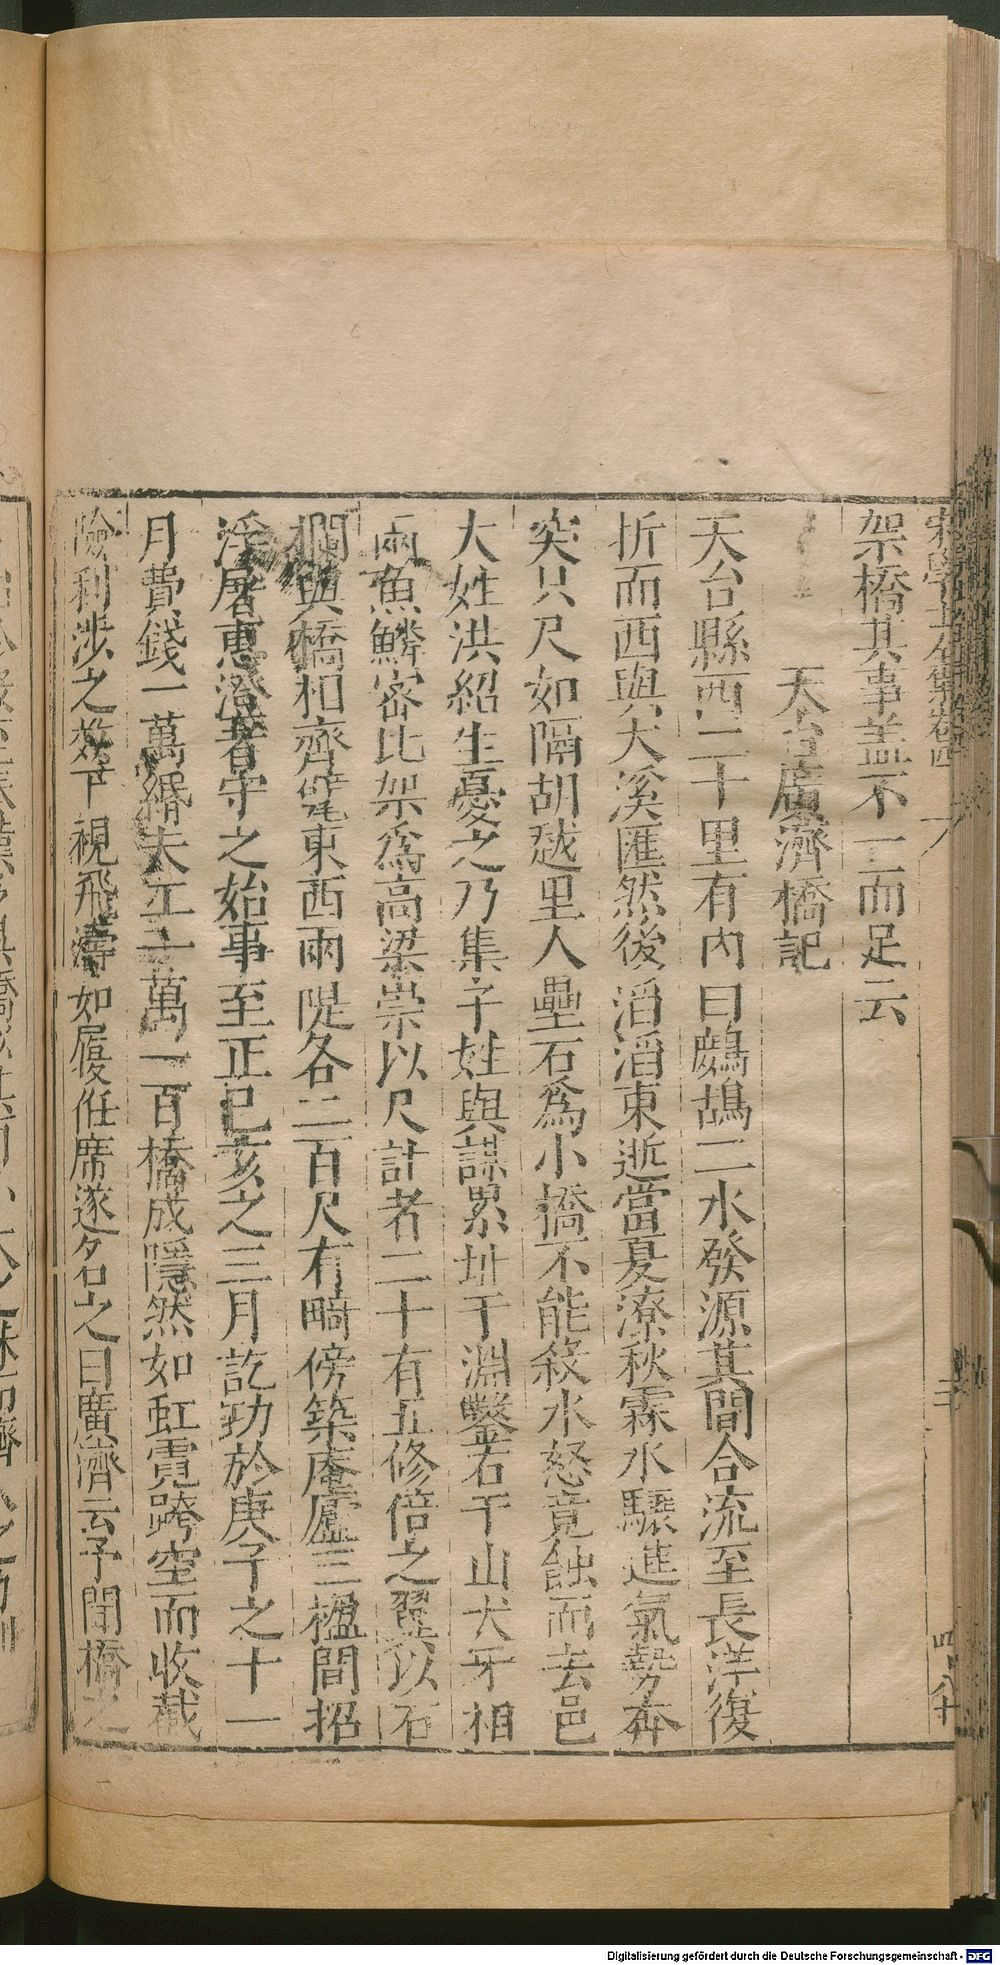 宋學士全集卷四
架橋其事蓋不一而足云
天台廣濟橋記
天台縣西二十里有內曰鷓鴣二水發源其間合流至長洋復
折而西與大溪匯然後滔滔東逝當夏潦秋霖水驟進氣勢奔
突只尺如隔胡越里人壘石爲小橋不能殺水怒竟蝕而去邑
大姓洪紹生憂之乃集子姓與謀累址于淵鑿石于山犬牙相
兩魚鱗密比架爲高梁崇以尺計者二十有五修倍之翼以石
欄與橋相齊甓東西兩隄各二百尺有畸傍築庵廬三楹間招
浮屠惠澄者守之始事至正己亥之三月訖功於庚子之十一
月費錢一萬緡夫工二萬一百橋成隱然如虹霓跨空而收載
險利涉之效下視飛濤如履袵席遂名之曰廣濟云予聞橋之
Digitalisierung gefördert durch die Deutsche Forschungsgemeinschaft - DFG